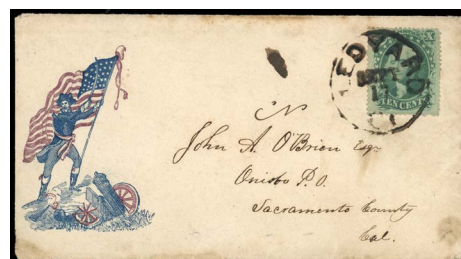 X
SEPT
17
TEN CENTS
CT
John A. O'Brien Esqr
Onisbo P.O.
Sacramento County
Cal.